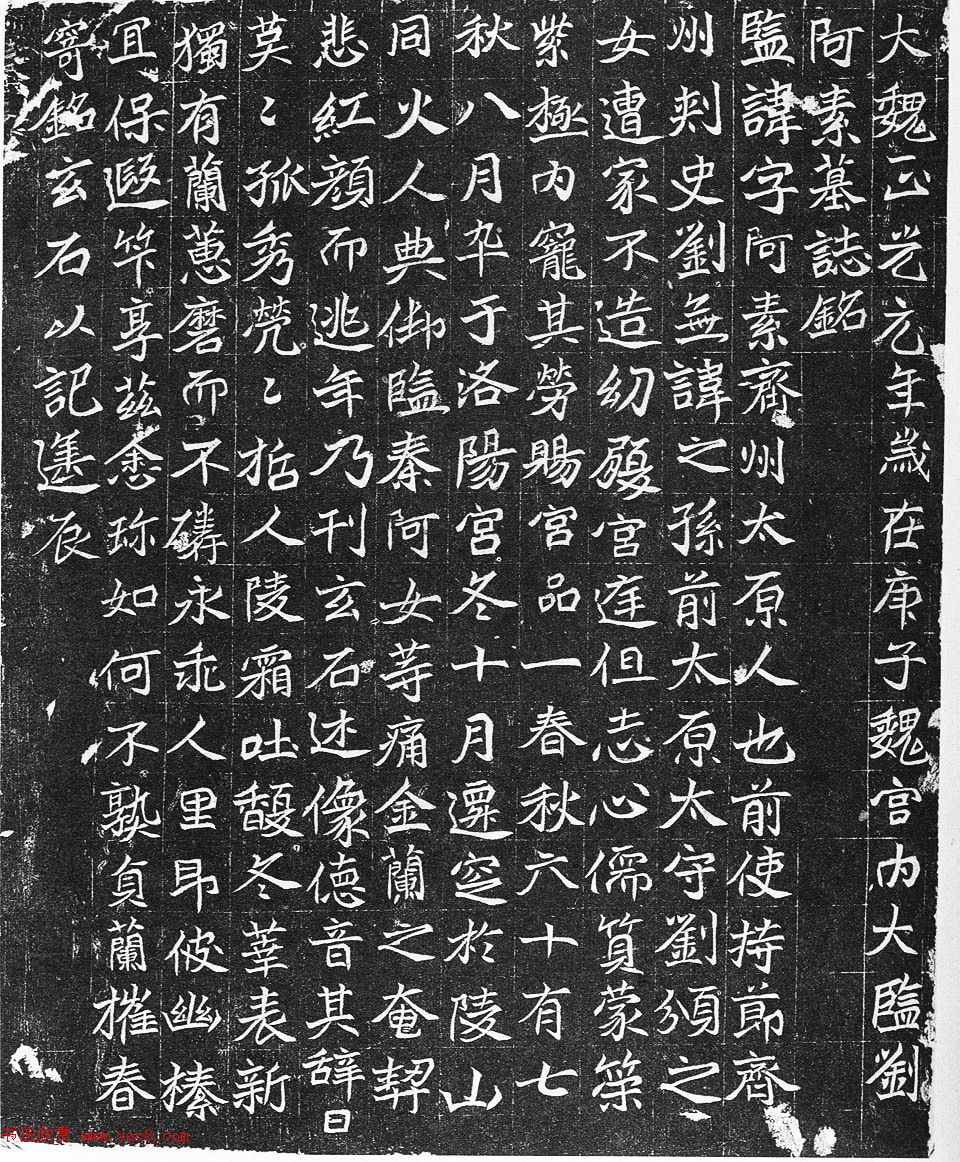 大魏正光元年歲在庚子魏宮內大監劉
阿素墓誌銘
監諱字阿素齊州太原人也前使持節齊
州刺史劉無諱之孫前太原太守劉頒之
女遭家不造幼履宮庭但志心儒質蒙策
紫極內寵其勞賜宮品一春秋六十有七
秋八月卒于洛陽宮冬十月遷窆於陵山
同火人典御監秦阿女等痛金蘭之奄契
悲紅顏而逃年乃刊玄石述像德音其辞曰
莫〻孤秀煢〻哲人陵霜吐馥冬華表新
獨有蘭蕙磨而不磷永乖人里即彼幽榛
宜保遐竿享茲悆珎如何不熟貞蘭摧春
寄銘玄石以記遷辰
书法欣赏 www.yac8.com